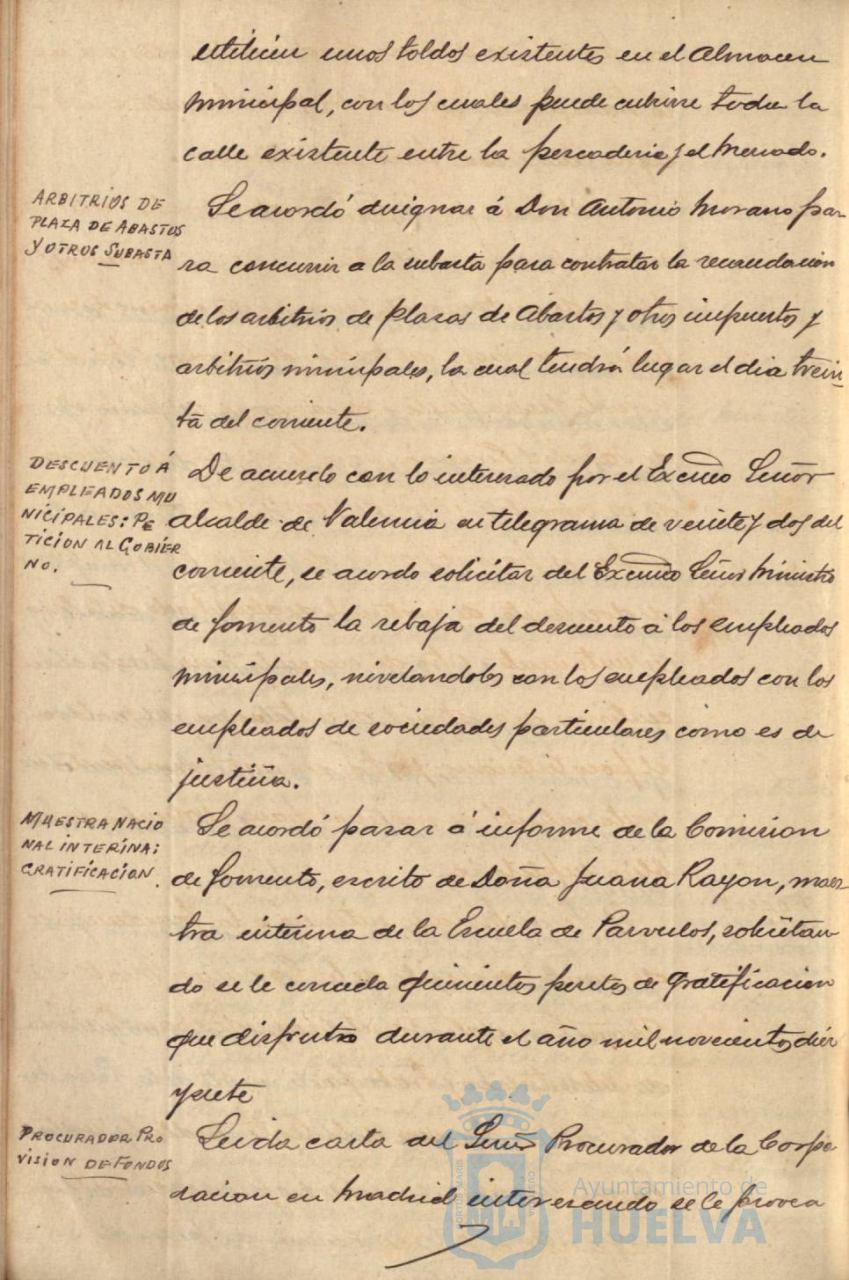 utilicen unos toldos existentes en el Almacen
municipal, con los cuales puede cubrirse toda la
calle existente entre la pescaderia y el Mercado.
ARBITRIOS DE
PLAZA DE ABASTOS
Y OTROS SUBASTA
Se acordó designar á Don Antonio Morano pa-
ra concurrir a la subasta para contratar la recaudacion
de los arbitrios de plazas de Abastos y otros impuestos y
arbitrios municipales, la cual tendrá lugar el dia trein
ta del corriente.
DESCUENTO Á
EMPLEADOS MU
NICIPALES: PE
TICION AL GOBIER
NO.
De acuerdo con lo interesado por el Excmo Señor
alcalde de Valencia en telegrama de veinte y dos del
corriente, se acordo solicitar del Excmo Señor Ministro
de fomento la rebaja del descuento á los empleados
municipales, nivelandoles con los empleados con los
empleados de sociedades particulares como es de
justicia.
MUESTRA NACIO
NAL INTERINA:
GRATIFICACION.
Se acordó pasar á informe de la Comision
de fomento, escrito de Doña Juana Rayon, maes
tra interina de la Escuela de Parvulos, solicitan-
do se le conceda quinientas pesetas de gratificacion
que disfrutó durante el año mil novecientos diez
y siete
PROCURADOR PRO
VISION DE FONDOS
Leida carta del Señor Procurador de la Corpo
racion en Madrid interesando se le provea
Ayuntamiento de
HUELVA